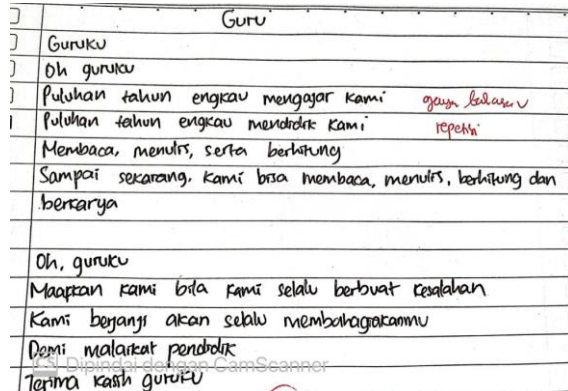 Guru
Guruku
Oh guruku
Puluhan tahun engkau mengajar kami gaya bahasa
Puluhan tahun engkau mendidik kami repetisi
Membaca, menulis, serta berhitung
Sampai sekarang, kami bisa membaca, menulis, berhitung dan
berkarya
Oh, guruku
Maafkan kami bila kami selalu berbuat kesalahan
Kami berjanji akan selalu membahagiakanmu
Demi malaikat pendidik
Dipindai dengan CamScanner
Terima kasih guruku